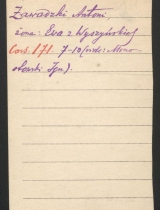 Zawadzki Antoni,
żona: Ewa z Wyszyńskich
Cars. 171. 7-13 (wds: Mono-
Ign).